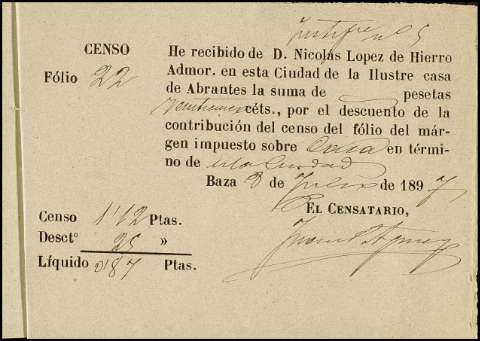 CENSO
Fólio 22
He recibido de D. Nicolás Lopez de Hierro
Admor. en esta Ciudad de la Ilustre casa
de Abrantes la suma de pesetas
céts., por el descuento de la
contribución del censo del fólio del már-
gen impuesto sobre Casa en térmi-
no de esta Ciudad
Baza 3 de Julio de 1897,
EL CENSATARIO,
Censo 1'12 Ptas.
Desctº 25 »
Líquido 0'87 Ptas.